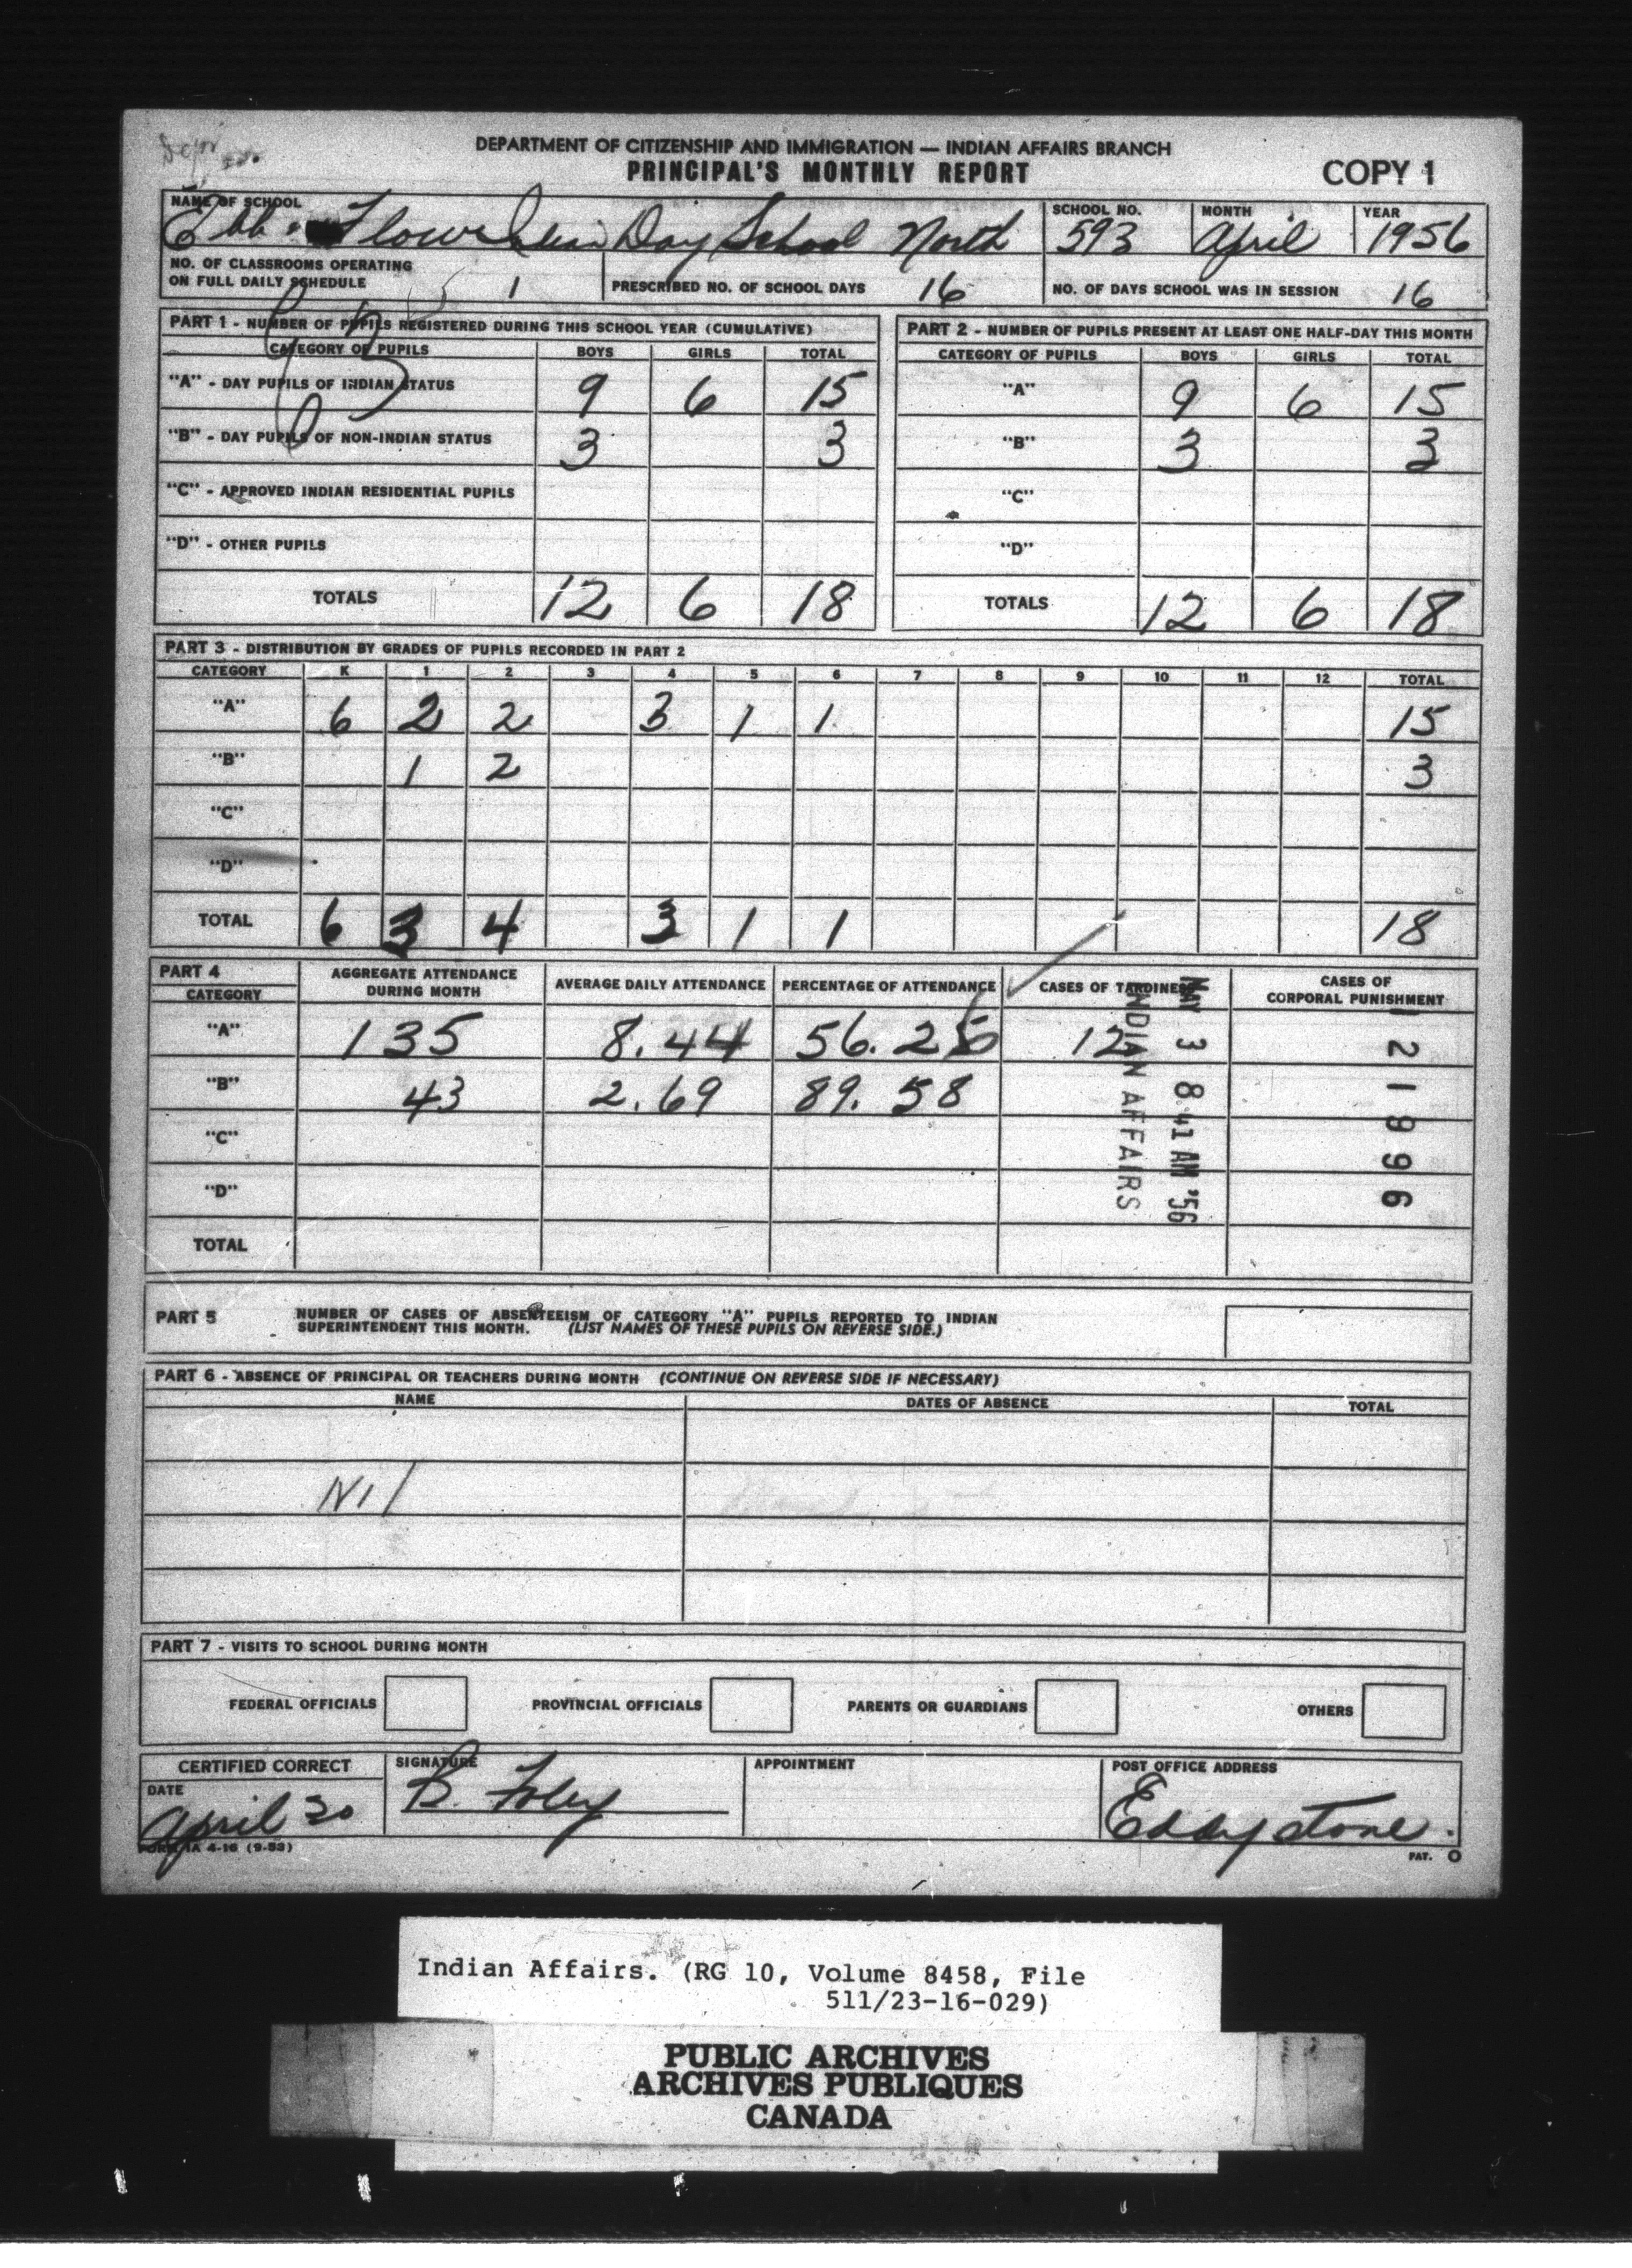 DEPARTMENT OF CITIZENSHIP AND IMMIGRATION — INDIAN AFFAIRS BRANCH
PRINCIPAL'S MONTHLY REPORT
COPY 1
NAME OF SCHOOL SCHOOL NO. MONTH YEAR
Ebb & Flow Indian Day School North 593 April 1956
NO. OF CLASSROOMS OPERATING
ON FULL DAILY SCHEDULE 1 PRESCRIBED NO. OF SCHOOL DAYS 16 NO. OF DAYS SCHOOL WAS IN SESSION 16
PART 1 - NUMBER OF PUPILS REGISTERED DURING THIS SCHOOL YEAR (CUMULATIVE)
CATEGORY OF PUPILS BOYS GIRLS TOTAL
"A" - DAY PUPILS OF INDIAN STATUS 9 6 15
"B" - DAY PUPILS OF NON-INDIAN STATUS 3 3
"C" - APPROVED INDIAN RESIDENTIAL PUPILS
"D" - OTHER PUPILS
TOTALS 12 6 18
PART 2 - NUMBER OF PUPILS PRESENT AT LEAST ONE HALF-DAY THIS MONTH
CATEGORY OF PUPILS BOYS GIRLS TOTAL
"A" 9 6 15
"B" 3 3
"C"
"D"
TOTALS 12 6 18
PART 3 - DISTRIBUTION BY GRADES OF PUPILS RECORDED IN PART 2
CATEGORY K 1 2 3 4 5 6 7 8 9 10 11 12 TOTAL
"A" 6 2 2 3 1 1 15
"B" 1 2 3
"C"
"D"
TOTAL 6 3 4 3 1 1 18
PART 4
CATEGORY AGGREGATE ATTENDANCE DURING MONTH AVERAGE DAILY ATTENDANCE PERCENTAGE OF ATTENDANCE CASES OF TARDINESS CASES OF CORPORAL PUNISHMENT
"A" 135 8.44 56.25 12
"B" 43 2.69 89.58
"C"
"D"
TOTAL
MAY 3 8 41 AM '56
INDIAN AFFAIRS
121996
PART 5 NUMBER OF CASES OF ABSENTEEISM OF CATEGORY "A" PUPILS REPORTED TO INDIAN
SUPERINTENDENT THIS MONTH. (LIST NAMES OF THESE PUPILS ON REVERSE SIDE.)
PART 6 - ABSENCE OF PRINCIPAL OR TEACHERS DURING MONTH (CONTINUE ON REVERSE SIDE IF NECESSARY)
NAME DATES OF ABSENCE TOTAL
Nil
PART 7 - VISITS TO SCHOOL DURING MONTH
FEDERAL OFFICIALS PROVINCIAL OFFICIALS PARENTS OR GUARDIANS OTHERS
CERTIFIED CORRECT SIGNATURE APPOINTMENT POST OFFICE ADDRESS
DATE
April 30 B. Foley Eddystone.
FORM IA 4-16 (9-53)
PAT.
Indian Affairs. (RG 10, Volume 8458, File
511/23-16-029)
PUBLIC ARCHIVES
ARCHIVES PUBLIQUES
CANADA